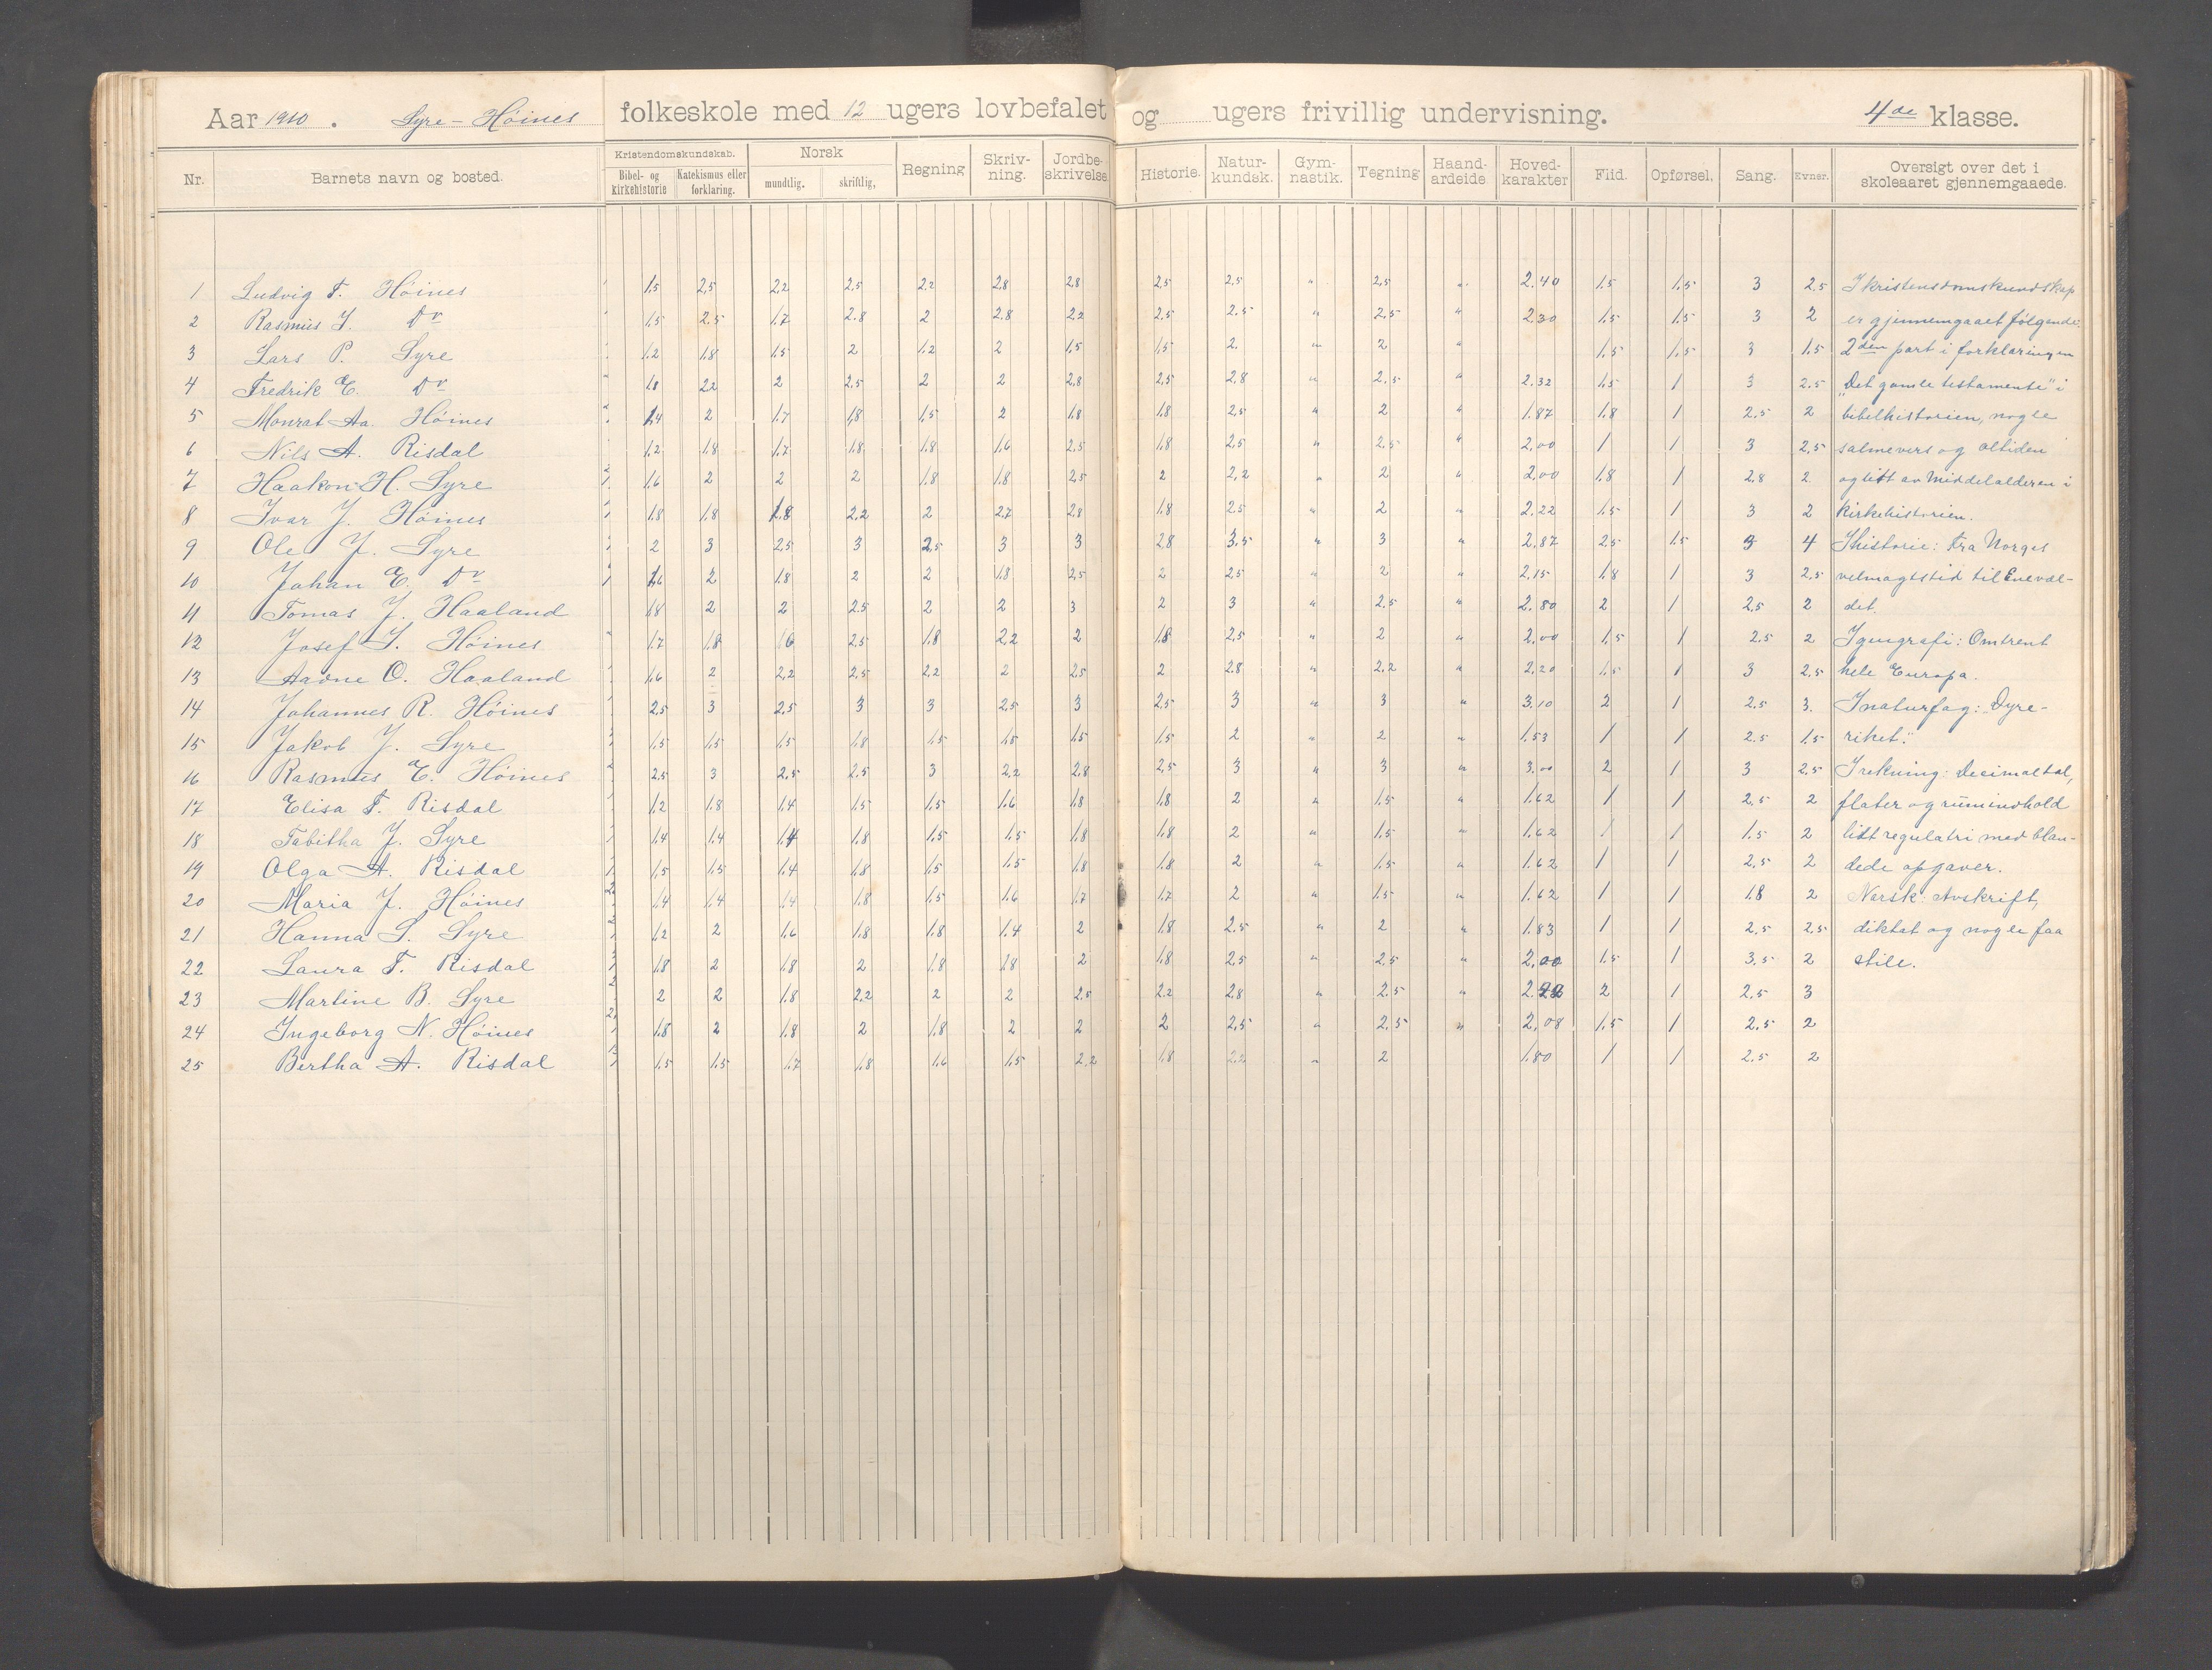 Aar 1910. Syre - Höines folkeskole med 12 ugers lovbefalet og ugers frivillig undervisning. 4de klasse.
Nr. Barnets navn og bosted. Kristendomskundskab. Bibel- og kirkehistorie Katekismus eller forklaring. Norsk mundtlig. skriftlig, Regning Skriv-ning. Jordbe-skrivelse. Historie. Natur-kundsk. Gym-nastik. Tegning Haand-arbeide Hoved-karakter Flid. Opførsel, Sang. Evner. Oversigt over det i skoleaaret gjennemgaaede.
1 Ludvig T. Höines 1,5 2,5 2,2 2,5 2,2 2,8 2,8 2,5 2,5 " 2,5 " 2.40 1,5 1,5 3 2,5 I kristensdomskundskap
2 Rasmus I. Do 1,5 2.5 1.7 2.8 2 2,8 2,2 2,5 2.5 " 2,5 " 2.30 1,5 1,5 3 2 er gjennemgaaet følgende:
3 Lars P. Syre 1,2 1,8 1,5 2 1,2 2 1,5 1,5 2. " 2 " 1,5 1,5 3 1,5 2den part i forklaringen
4 Fredrik E. Do 1,8 2,2 2 2,5 2 2 2,8 2,5 2,8 " 2,5 " 2.32 1,5 1 3 2,5 "Det gamle testamente" i
5 Monrat Aa. Höines 1,4 2 1,7 1,8 1,5 2 1,8 1,8 2,5 " 2 " 1.87 1,8 1 2,5 2 bibelhistorien, nogle
6 Nils A. Risdal 1,2 1,8 1,7 1,8 1,8 1,6 2,5 1,8 2,5 " 2,5 " 2,00 1 1 3 2,5 salmevers og oltiden
7 Haakon H. Syre 1,6 2 2 2 1,8 1,8 2,5 2 2,2 " 2 " 2,00 1,8 1 2,8 2 og litt av Middelalderen i
8 Ivar J. Höines 1,8 1,8 1,8 2,2 2 2,7 2,8 1,8 2,5 " 2 " 2,22 1,5 1 3 2 kirkehistorien.
9 Ole J. Syre 2 3 2,5 3 2,5 3 3 2,8 3,5 " 3 " 2,87 2,5 1,5 3 4 I historie: Fra Norges
10 Johan E. Do 1,6 2 1,8 2 2 1,8 2,5 2 2,5 " 2 " 2,15 1,8 1 3 2,5 velmagtstid til Enevæl-
11 Tomas J. Haaland 1,8 2 2 2.5 2 2 3 2 3 " 2,5 " 2.80 2 1 2,5 2 det.
12 Josef I. Höines 1,7 1,8 1,6 2,5 1,8 2,2 2 1,8 2,5 " 2 " 2,00 1,5 1 2.5 2 I geografi: Omtrent
13 Aadne O. Haaland 1,6 2 2,2 2,5 2,2 2 2,5 2 2,8 " 2,2 " 2,20 1,5 1 3 2,5 hele Europa.
14 Johannes R. Höines 2,5 3 2,5 3 3 2,5 3 2,5 3 " 3 " 3,10 2 1 2,5 3. I naturfag: "Dyre-
15 Jakob J. Syre 1,5 1,5 1,5 1,8 1,5 1,5 1,5 1,5 2 " 2 " 1.53 1 1 2.5 1.5 riket".
16 Rasmus E. Höines 2,5 3 2,5 2.5 3 2,2 2,8 2,5 3 " 3 " 3,00 2 1 3 2,5 I rekning: Decimaltal,
17 Elisa T. Risdal 1,2 1,8 1,4 1,5 1,5 1,6 1,8 1,8 2 " 1,5 " 1.62 1 1 2,5 2 flater og rumindhold
18 Tabitha J. Syre 1,4 1,4 1,4 1,8 1,5 1,5 1,8 1,8 2 " 1,5 " 1.62 1 1 1.5 2 lidt regulatri med blan-
19 Olga A. Risdal 1,5 1,5 1,4 1,8 1,5 1,5 1,8 1,8 2 " 1,5 " 1.62 1 1 2,5 2 dede opgaver.
20 Maria J. Höines 1,4 1,4 1,4 1,8 1,5 1,6 1,7 1,7 2 " 1,5 " 1.62 1 1 1.8 2 Norsk: Avskrift,
21 Hanna S. Syre 1,2 2 1,6 1,8 1,8 1,4 2 1,8 2.5 " 2 " 1.83 1 1 2,5 2,5 diktat og nogle faa
22 Laura T. Risdal 1,8 2 1,8 2 1,8 1,8 2 1,8 2,5 " 2,5 " 2,00 1,5 1 3,5 2 stile.
23 Martine B. Syre 2 2 1,8 2,2 2 2 2,5 2,2 2,8 " 2.5 " 2 1 2,5 3
24 Ingeborg N. Höines 1,8 2 1,8 2 1,8 2 2 2 2,5 " 2,5 " 2,08 1,5 1 2,5 2
25 Bertha A. Risdal 1,5 1,5 1,7 1,8 1,6 1,5 2,2 1,8 2,2 " 2 1.80 1 1 2.5 2